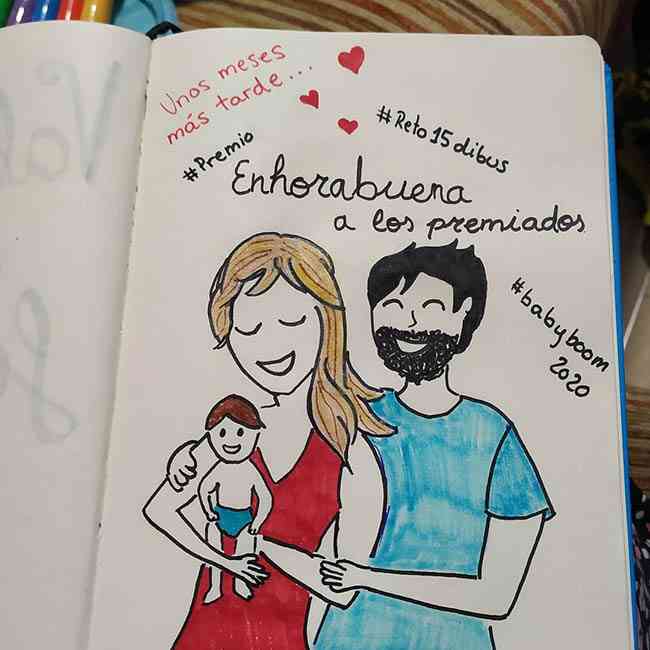 Unos meses
más tarde...
#Premio
#Reto15dibus
Enhorabuena
a los premiados
#babyboom
2020